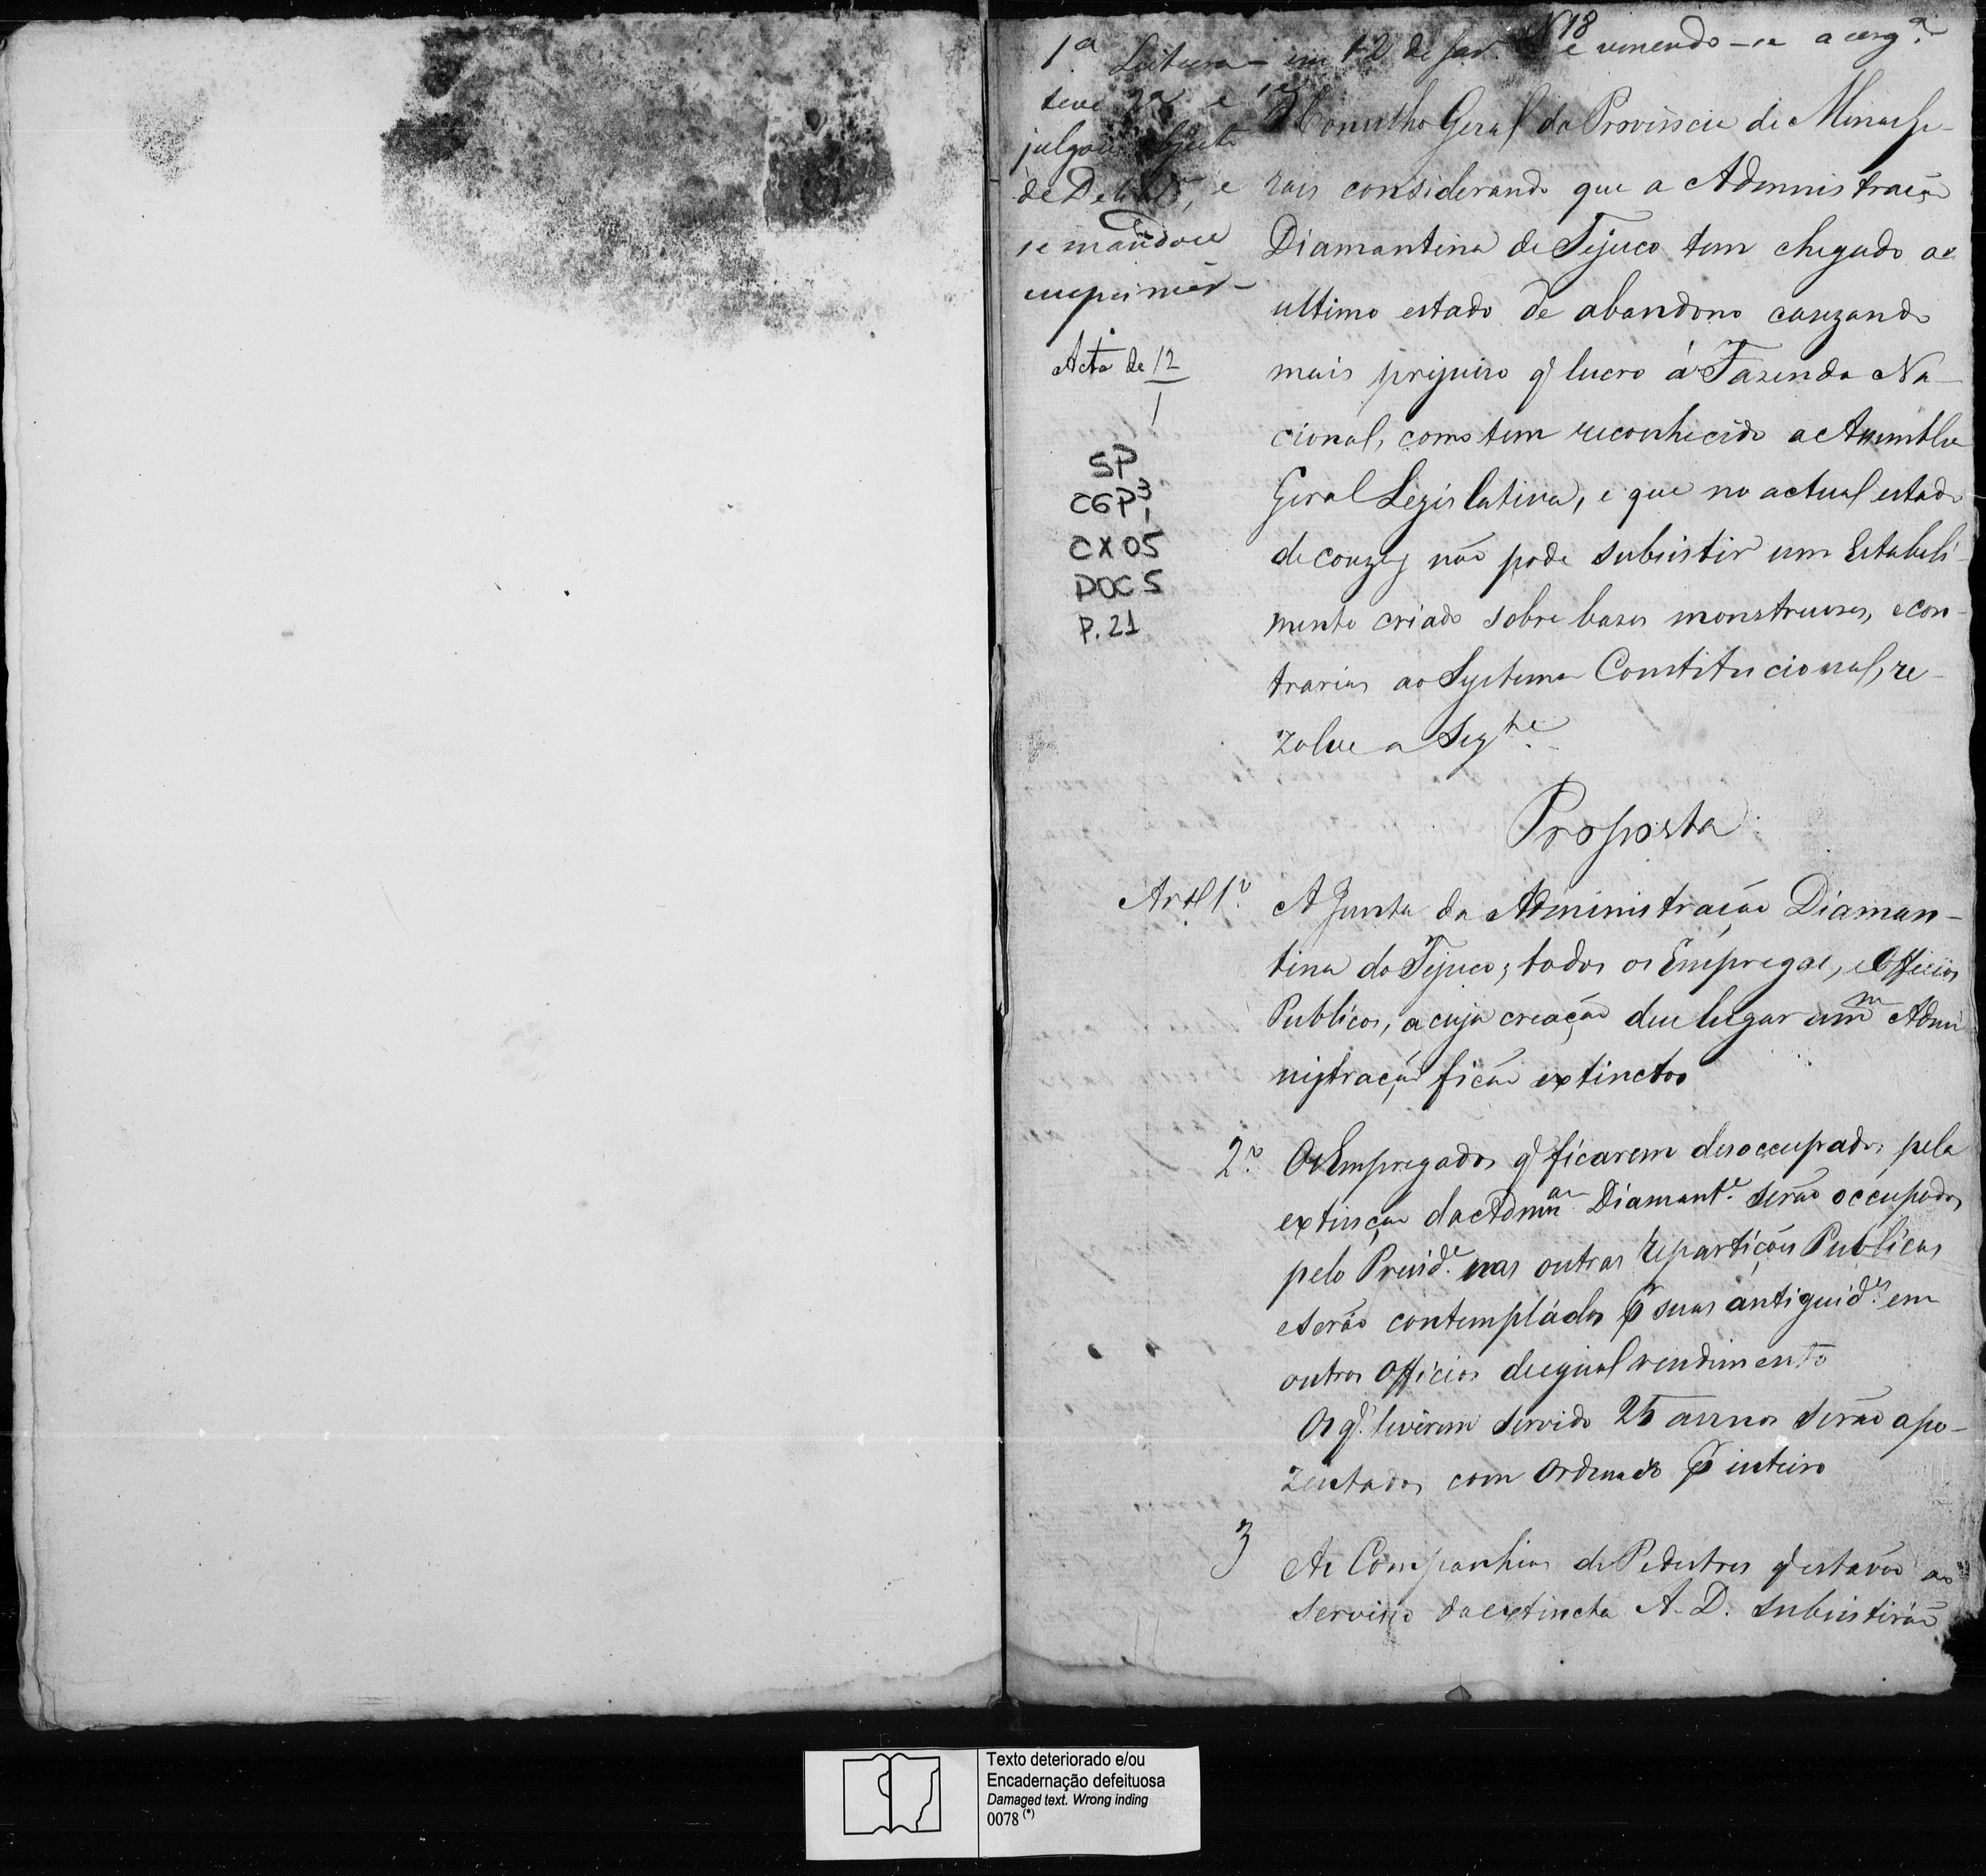 Nº 18
1ª Leitura em 12 de Jan.º e vencendo-se a urgª.
teve 2ª e
julgou objecto
de Delib.ão, e
se mandou
imprimir
Acta de 12
1
SP
CGP 3
1
CX 05
DOC 5
P. 21
O Conselho Geral da Provincia de Minas Ge-
raes considerando que a Administração
Diamantina de Tejuco tem chegado ao
ultimo estado de abandono cauzando
mais prejuiso q lucro á Fazenda Na-
cional, como tem reconhecido a Assemblea
Geral Legislativa, e que no actual estado
de couzas não pode subsistir um Estabeli-
mento criado sobre bases monstruosas, e con-
trarias ao Systema Constitucional, re-
zolve a Seg.te
Proposta
Art 1º A Junta da Administração Diaman-
tina do Tejuco, todos os Empregos, e Officios
Publicos, a cuja creação deu lugar a m.ma Admi
nistração ficão extinctos
2º Os Empregados q ficarem desoccupados pela
extinção da Admam Diamant.e serão occupados
pelo Presid.e nas outras repartições Publicas
e serão contemplados p suas antiguid.es em
outros Officios de igual rendimento
Os q. tiverem servido 25 annos serão apo-
zentados com Ordenado p inteiro
3 As Companhias de Pedestres q estavão ao
serviço da extincta A. D. subsistirão
Texto deteriorado e/ou
Encadernação defeituosa
Damaged text. Wrong inding
0078 (*)